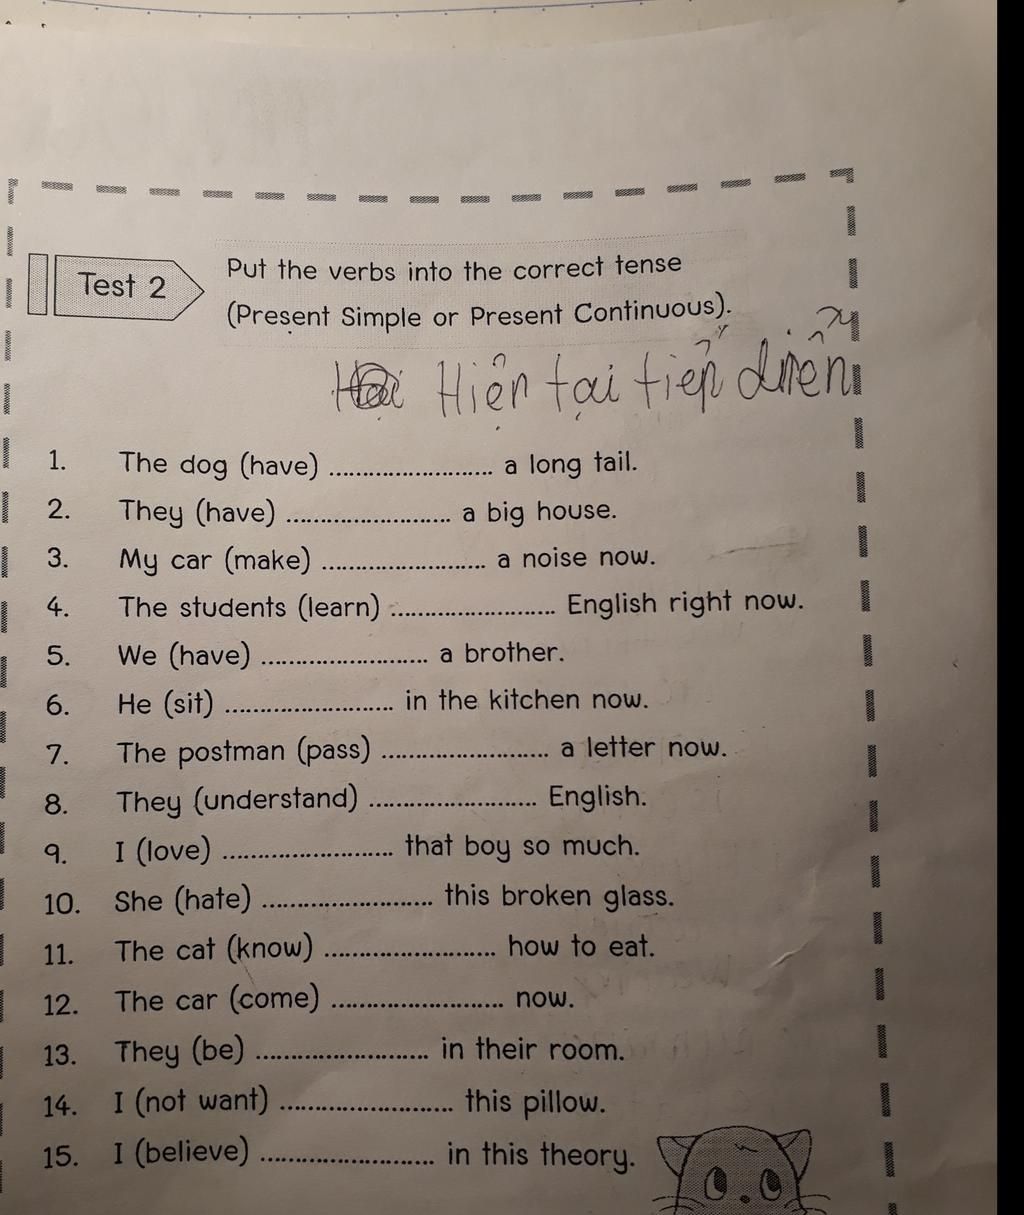 Test 2
Put the verbs into the correct tense
(Present Simple or Present Continuous).
Hiện tại tiếp diễn
1. The dog (have) ........................ a long tail.
2. They (have) ........................ a big house.
3. My car (make) ........................ a noise now.
4. The students (learn) ........................ English right now.
5. We (have) ........................ a brother.
6. He (sit) ........................ in the kitchen now.
7. The postman (pass) ........................ a letter now.
8. They (understand) ........................ English.
9. I (love) ........................ that boy so much.
10. She (hate) ........................ this broken glass.
11. The cat (know) ........................ how to eat.
12. The car (come) ........................ now.
13. They (be) ........................ in their room.
14. I (not want) ........................ this pillow.
15. I (believe) ........................ in this theory.